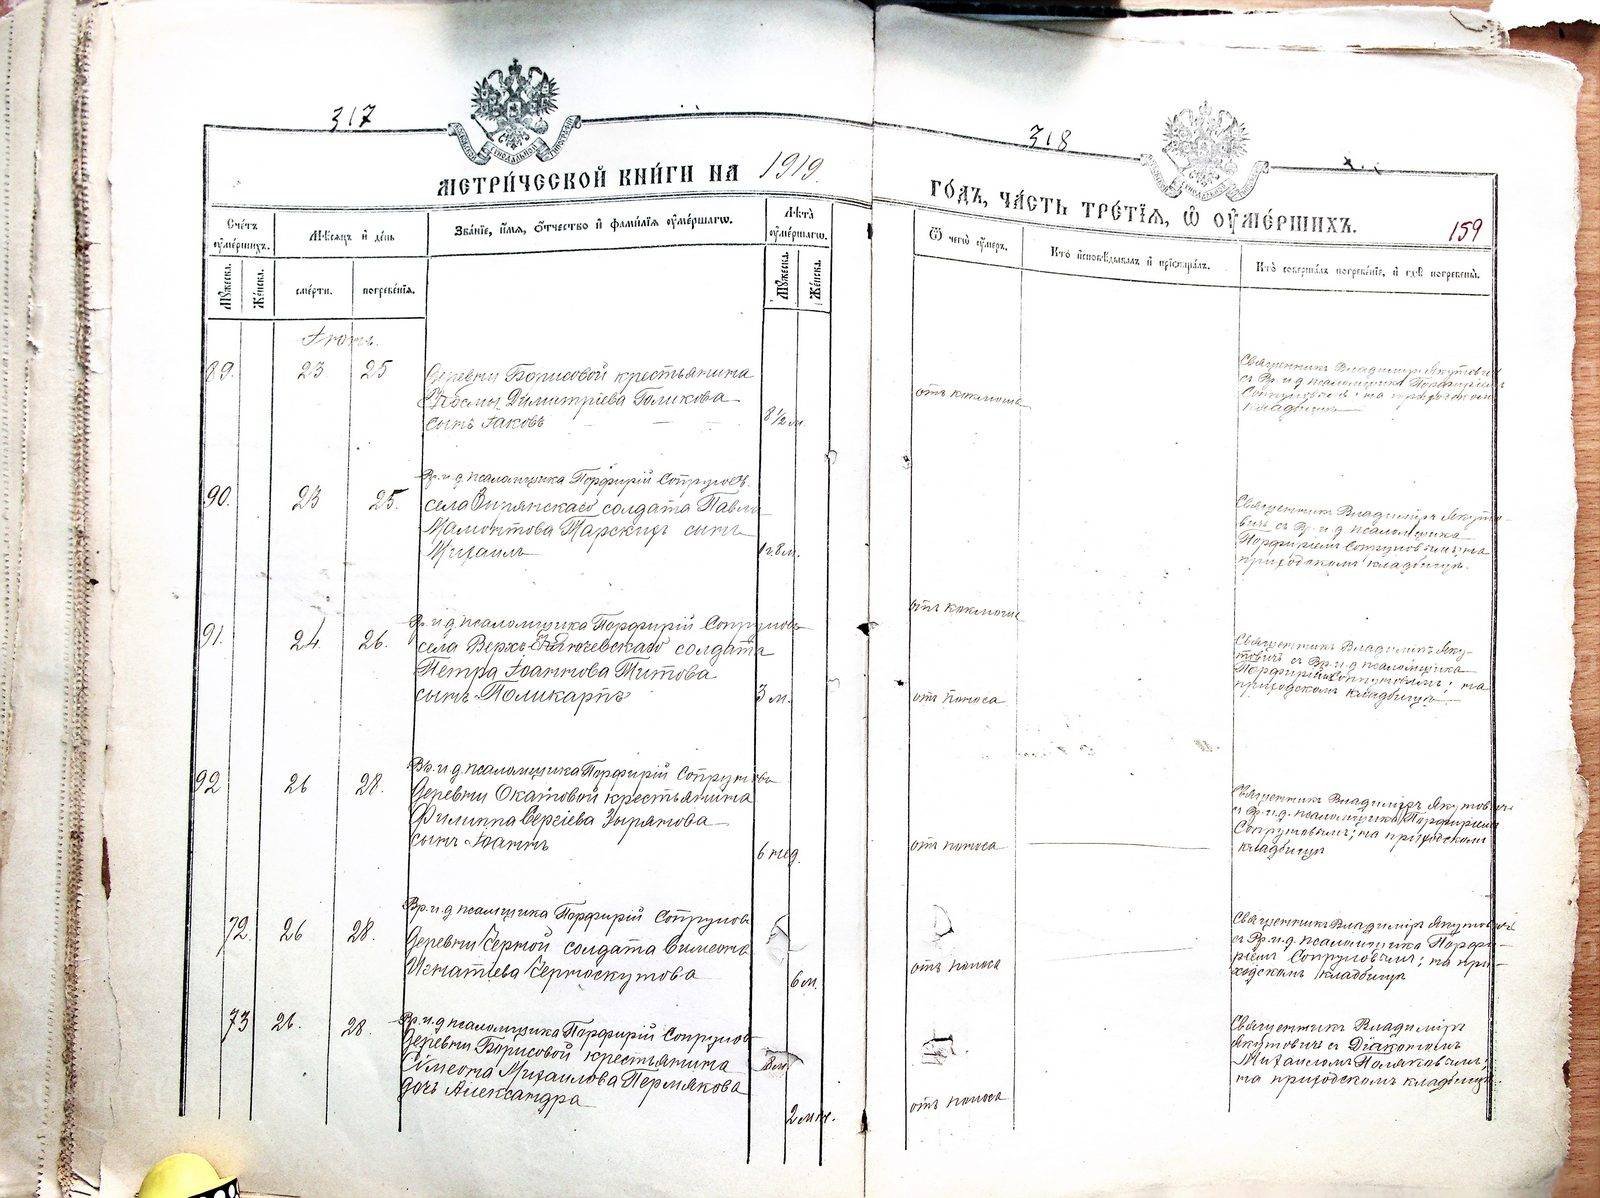 317
МЕТРИЧЕСКОЙ КНИГИ НА 1919
318
ГОДЪ, ЧАСТЬ ТРЕТІЯ, Ѡ ОУМЕРШИХЪ.
159
Счетъ оумершихъ.
Мѣсяцъ и день
Званіе, имя, отчество и фамилія оумершагѡ.
Лѣта оумершагѡ.
Ѿ чегѡ оумеръ.
Кто исповѣдывалъ и пріобщалъ.
Кто совершалъ погребеніе, и гдѣ погребены.
Мужеска.
Женска.
смерти.
погребенія.
Мужеска.
Женска.
89.
23
25
деревни Борисовой крестьянина
Космы Димитріева Голикова
сынъ Іаковъ
8 1/2 м.
отъ коклюша
Священникъ Владиміръ Якутовичъ
съ Вр. и. д. псаломщика Порфиріемъ
Сопруновымъ; на приходском
кладбищѣ
Вр. и. д. псаломщика Порфирій Сопруновъ
90.
23
25.
села солдата Павла
Мамонтова сынъ
Михаилъ
1 г. 8 м.
отъ коклюша
Священникъ Владиміръ Якуто-
вичъ съ Вр. и д псаломщика
Порфиріемъ Сопруновымъ; на
приходскомъ кладбищѣ.
Вр. и д псаломщика Порфирій Сопруновъ
91.
24.
26.
села солдата
Петра Іоаннова Титова
сынъ Поликарпъ
3 м.
отъ поноса
Священникъ Владиміръ Яку-
товичъ съ Вр. и д. псаломщика
Порфиріемъ Сопруновымъ; на
приходскомъ кладбищѣ
Вр. и д. псаломщика Порфирій Сопруновъ
92
26
28.
деревни Окатовой крестьянина
Филиппа Сергіева Зырянова
сынъ Іоаннъ
6 нед.
отъ поноса
Священникъ Владиміръ Якутовичъ
съ Вр. и. д. псаломщика Порфиріемъ
Сопруновымъ; на приходскомъ
кладбищѣ
Вр. и д псаломщика Порфирій Сопруновъ
72.
26
28.
деревни Черной солдата Симеона
Игнатіева Черноскутова
6 м.
отъ поноса
Священникъ Владиміръ Якутовичъ
съ Вр. и д. псаломщика Порфи-
ріемъ Сопруновымъ; на при-
ходскомъ кладбищѣ
Вр. и. д псаломщика Порфирій Сопруновъ
73
26.
28.
деревни Борисовой крестьянина
Симеона Михаилова Пермякова
дочь Александра
2 м.
отъ поноса
Священникъ Владиміръ
Якутовичъ съ Діакономъ
Михаиломъ Поляковымъ;
на приходскомъ кладбищѣ.